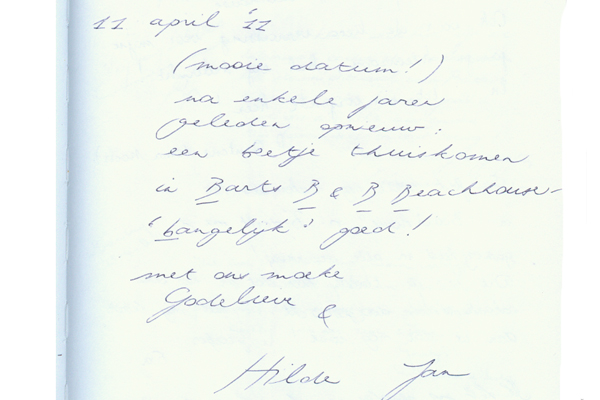 11 april '11
(mooie datum!)
na enkele jaren
geleden opnieuw:
een beetje thuiskomen
in Barts B & B Beachhouse-
'bangelijk' goed!
met ons moeke
Godelieve &
Hilde Jan